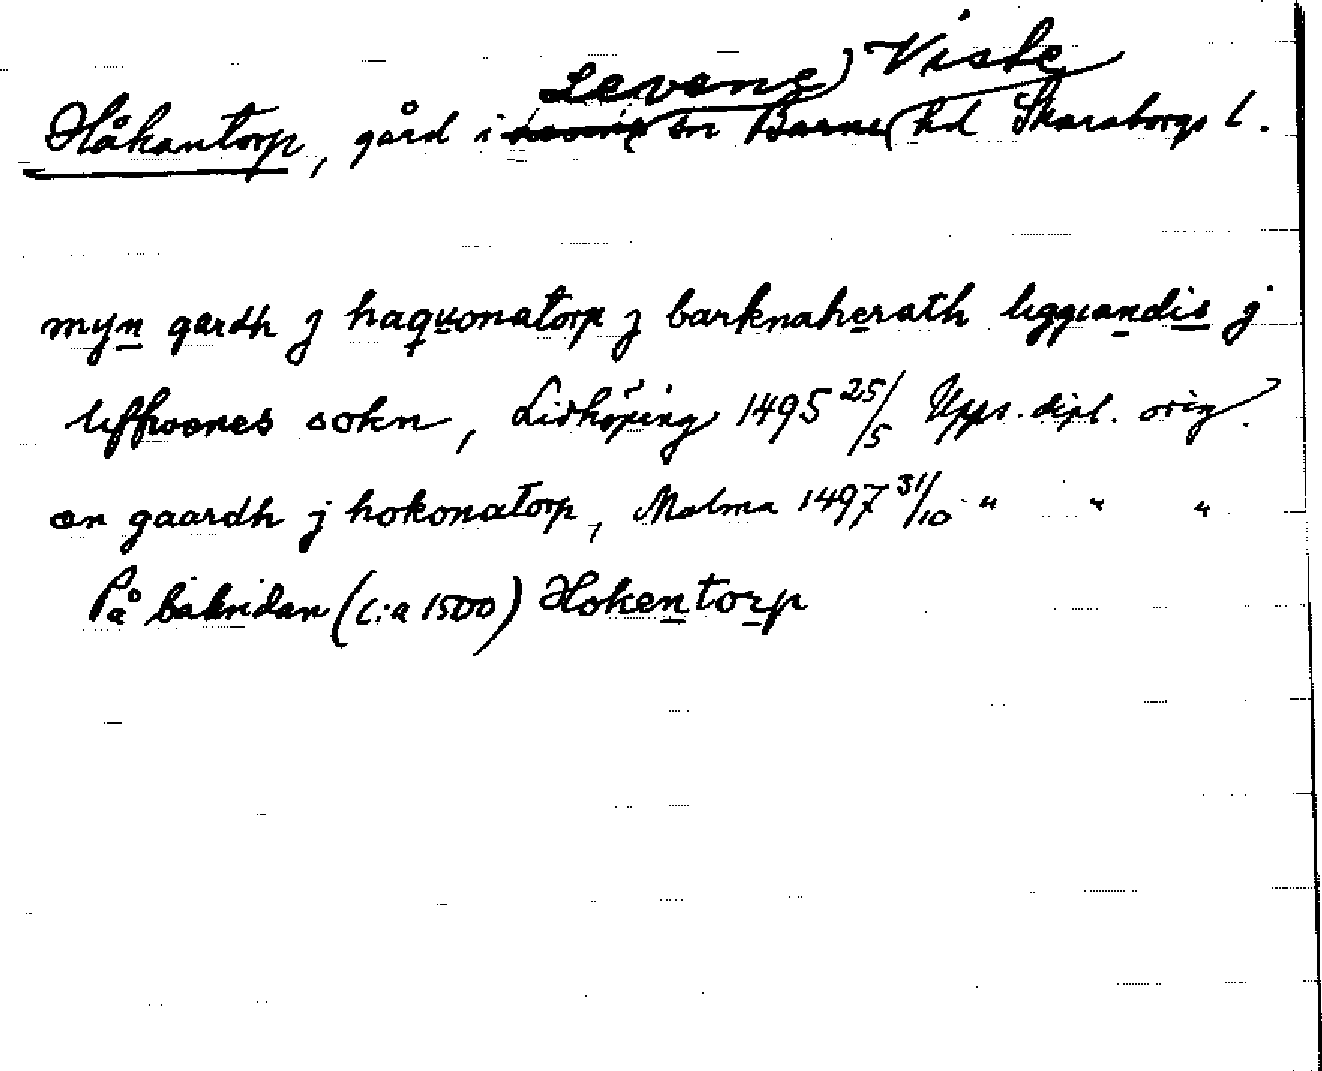 Levene Viste
Håkantorp, gård i sn Barne hd Skaraborgs l.
myn gardh j haquonatorp j barknaherath liggiandis j
liffwenes sokn, Lidköping 1495 25/5 Upps. dipl. orig.
en gaardh j hokonatorp, Malma 1497 31/10 " " "
På baksidan (c:a 1500) Hokentorp